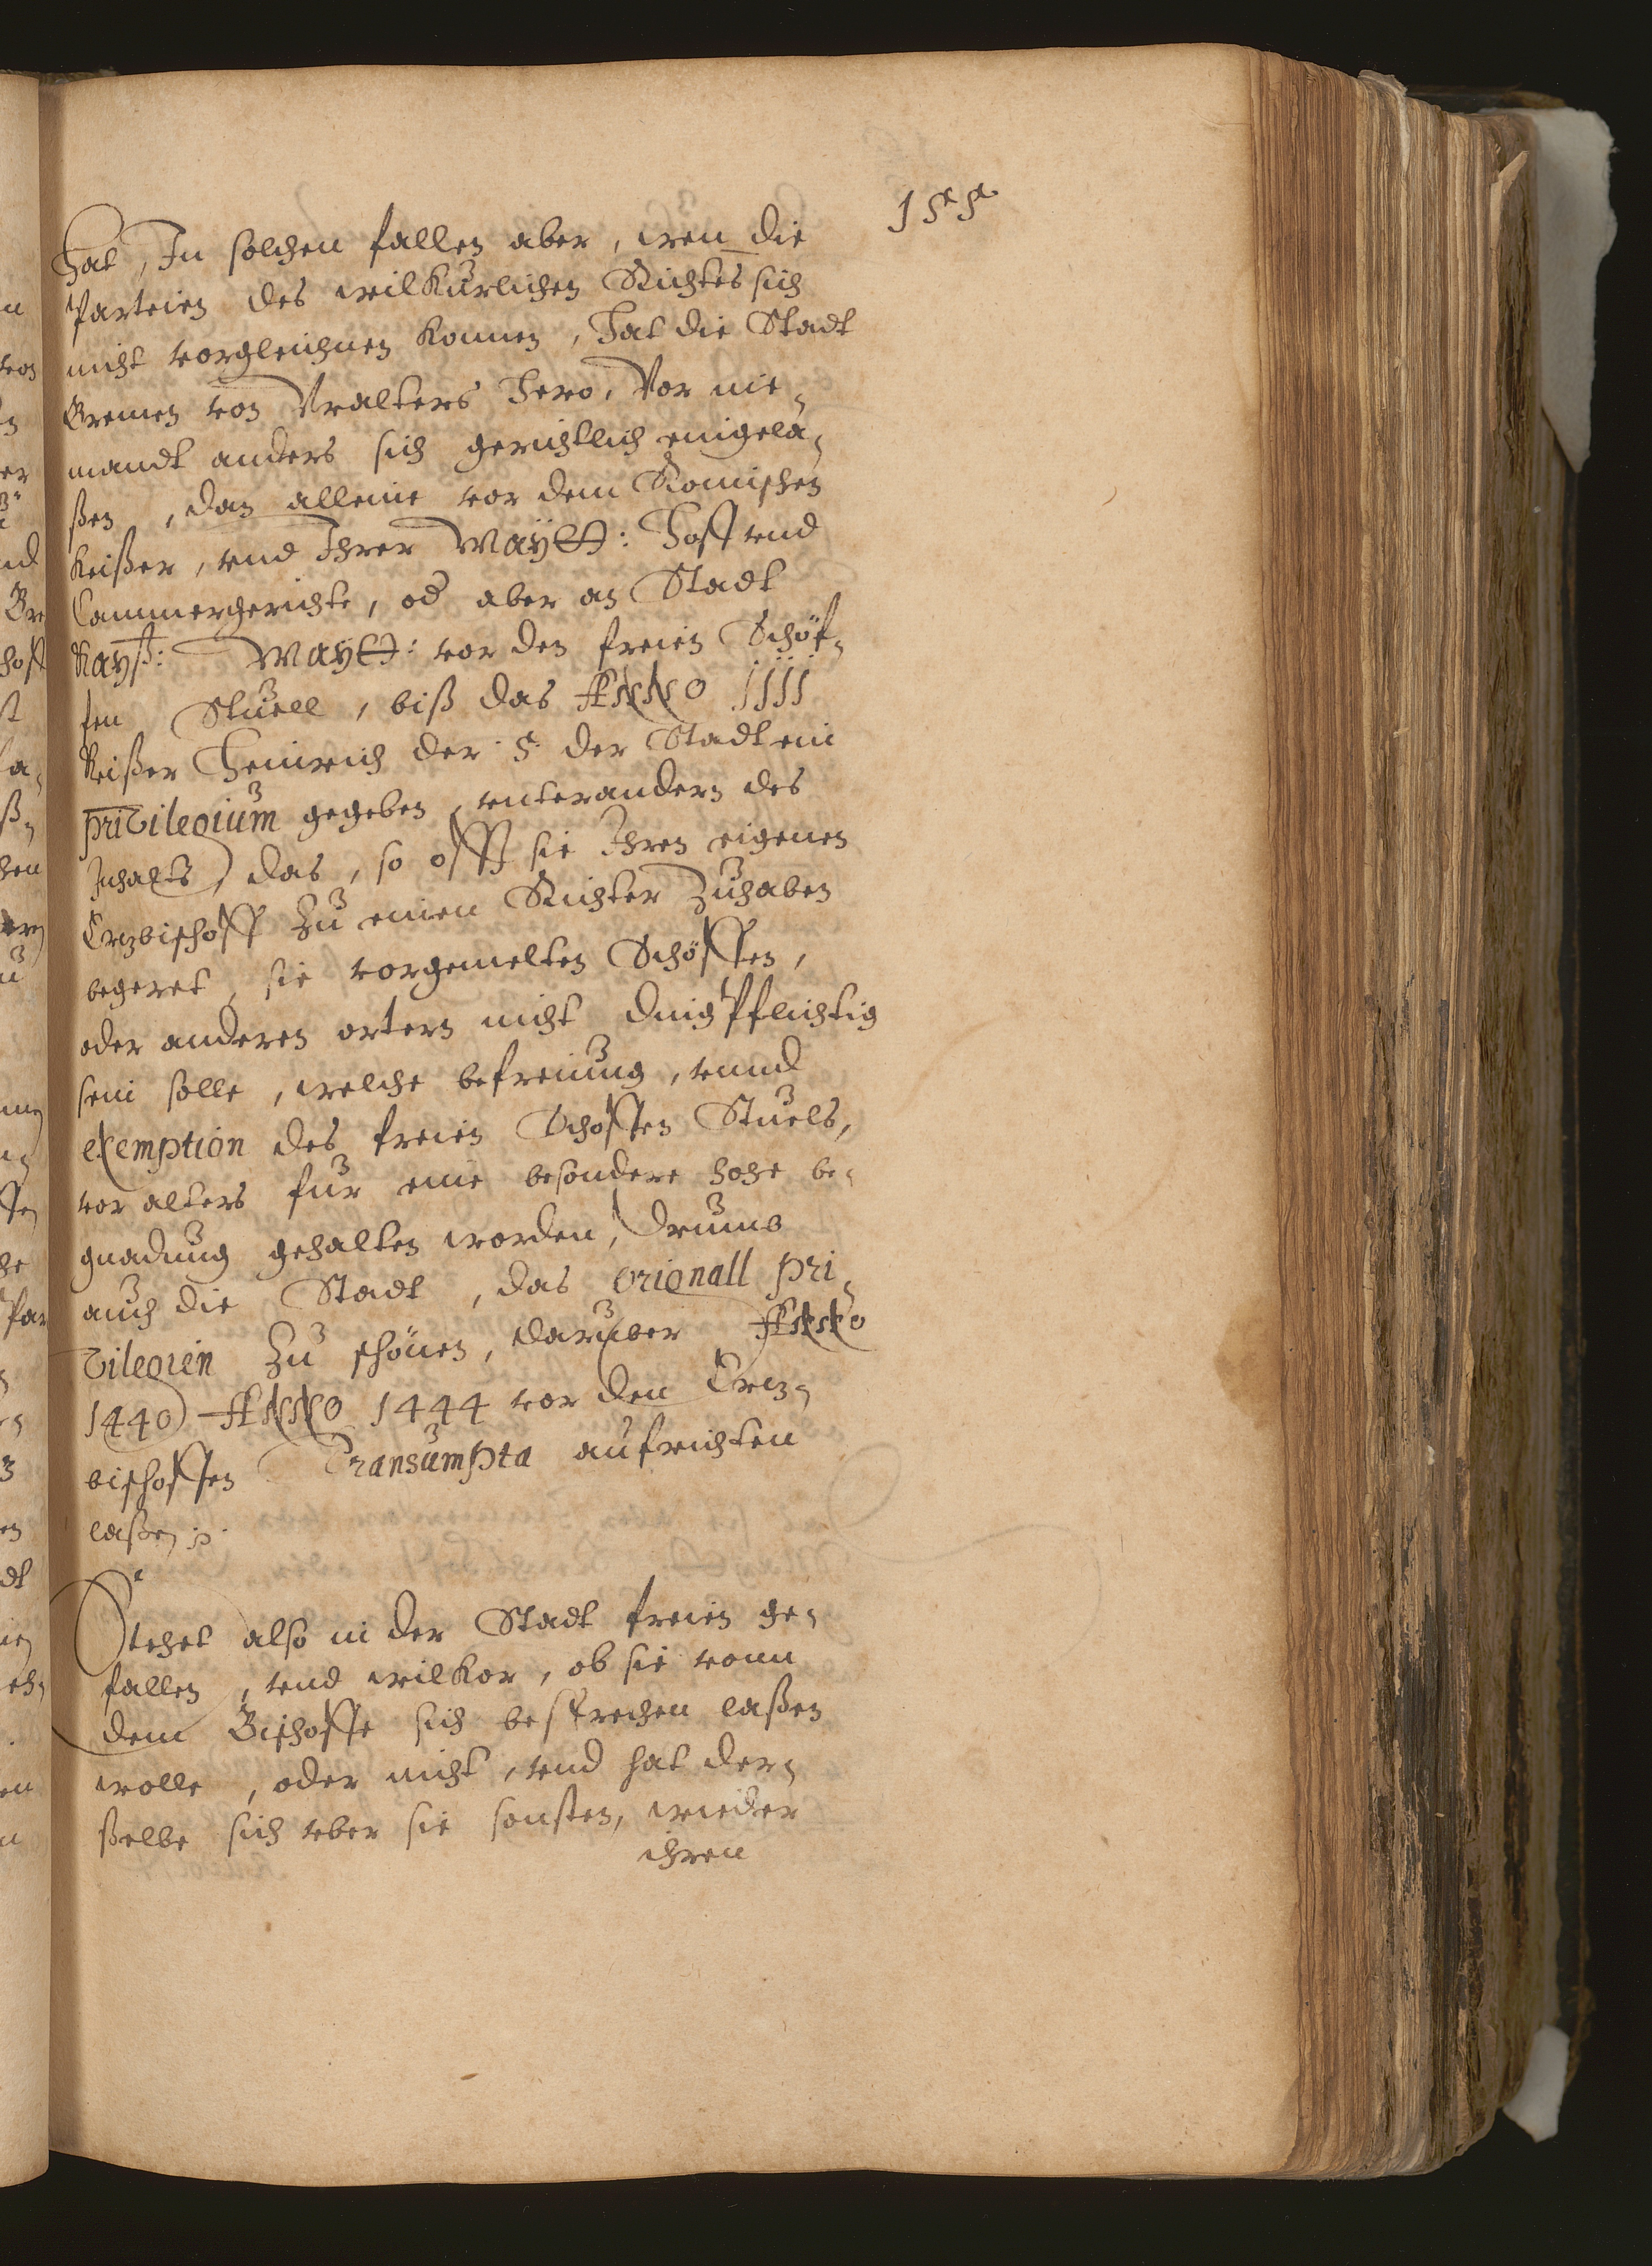 155
hat, In solchen fallen aber, wen die
Parteien des wilkurlichen Richtes sich
nicht vorgleichnen konnen, hat die Stadt
Bremen von Vralters hero, Vor nie-
mandt anders sich gerichtlich eingela-
ßen, dan alleine vor dem Romischen
Keißer, vnd Ihrer Maytt: Hoff vnd
Cammergerichte, od aber an Stadt
Kayß: Maytt: vor den freien Schöf-
fen Stuell, biß das Anno 1111
Keißer Heinrich der 5. der Stadt ein
privilegium gegeben, vnterandern des
Inhalts, das, so offt sie Ihren eigenen
Ertzbischoff zu einen Richter zuhaben
begeret, sie vorgemelten Schöffen,
oder anderen ortern nicht dingPflichtig
sein solle, welche befreiung, vnnd
exemption des freien Schoffen Stuels,
vor alters fur eine besondere hohe be-
gnadung gehalten worden, drumb
auch die Stadt, das orignall pri-
vilegien zu schönen, daruber Anno
1440 Anno 1444 vor den Ertz-
bischoffen Transumpta aufrichten
laßen p.
Stehet also in der Stadt freien ge-
fallen, vnd wilkor, ob sie vonn
dem Bischoffe sich besprechen laßen
wolle, oder nicht, vnd hat der-
ßelbe sich vber sie sonsten, wieder
ihren